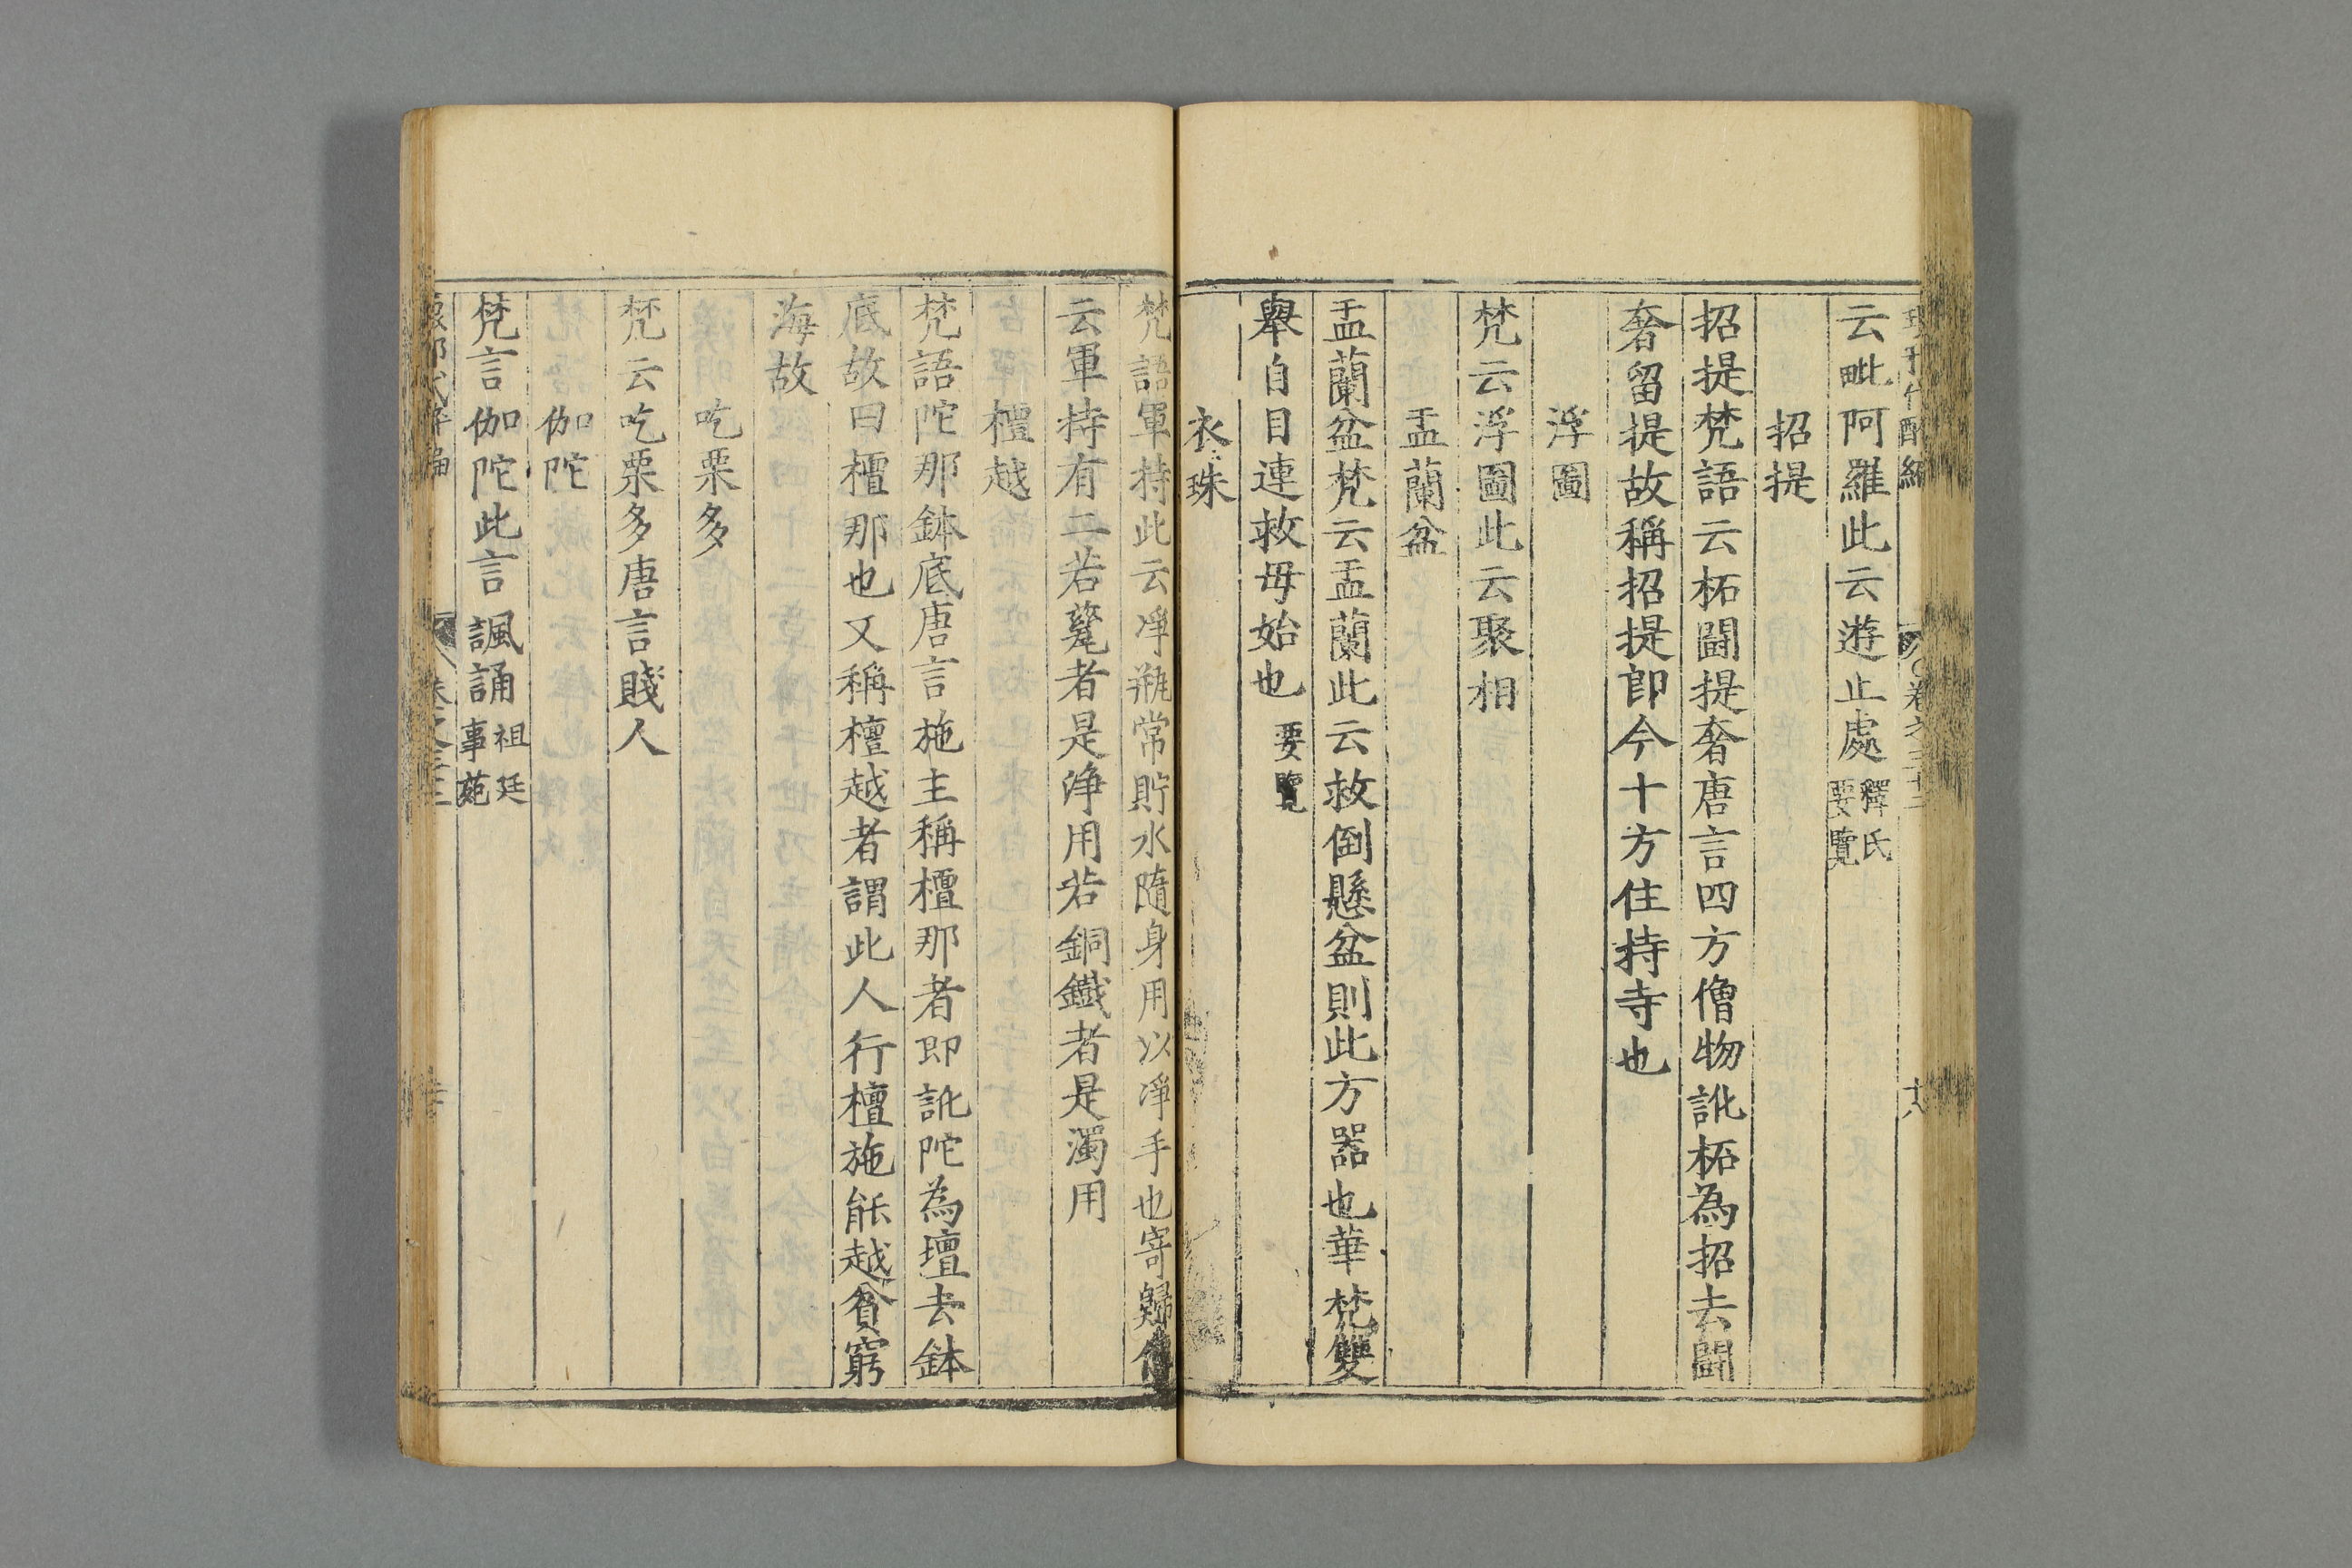 云毗阿羅此云遊止處釋氏要覽
招提
招提梵語云柘鬪提奢唐言四方僧物訛柘為招去鬪
奢留提故稱招提即今十方住持寺也
浮圖
梵云浮圖此云聚相
盂蘭盆
盂蘭盆梵云盂蘭此云救倒懸盆則此方器也華梵雙
舉自目連救母始也要覽
衣珠
梵語軍持此云淨瓶常貯水隨身用以淨手也寄歸傳
云軍持有二若甆者是淨用若銅鐵者是濁用
檀越
梵語陀那鉢底唐言施主稱檀那者即訛陀為壇去鉢
底故曰檀那也又稱檀越者謂此人行檀施能越貧窮
海故
吃栗多
梵云吃栗多唐言賤人
伽陀
梵言伽陀此言諷誦祖廷事苑